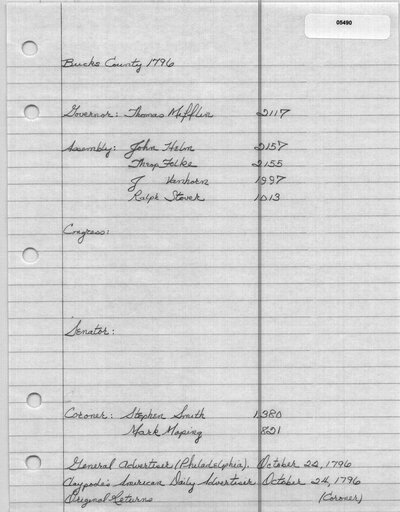 05490
Bucks County 1796
Governor: Thomas Mifflin 2117
Assembly: John Heln 2157
Throp Folke 2155
J Vanhorn 1997
Ralph Stover 1013
Congress:
Senator:
Coroner: Stephen Smith 1380
Mark Moping 821
General Advertiser (Philadelphia). October 22, 1796
Claypoole's American Daily Advertiser. October 24, 1796
Original Returns (Coroner)